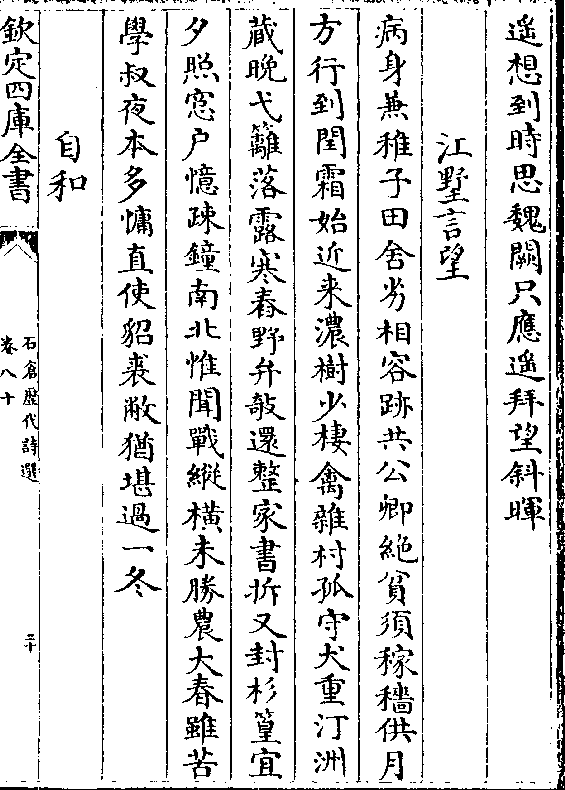 遥想到時思魏闕只應遥拜望斜暉
江墅言望
病身兼稚子田舍劣相容跡共公卿絶貧須稼穡供月
方行到閏霜始近来濃樹少棲禽雜村孤守犬重汀洲
藏晚弋籬落露寒舂野弁敧還整家書拆又封杉篁宜
夕照窓户憶疎鐘南北惟聞戰縱横未勝農大春雖苦
學叔夜本多慵直使貂裘敝猶堪過一冬
自和
欽定四庫全書
石倉歷代詩選
卷八十
三十